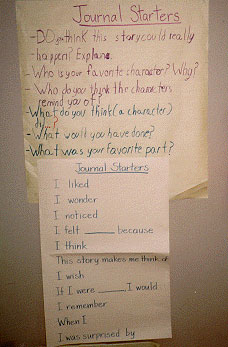 Journal Starters
-DO you think this story could really
happen? Explain.
-Who is your favorite character? Why?
-Who do you think the characters
remind you of?
-What do you think (a character)
-What would you have done?
-What was your favorite part?
Journal Starters
I liked
I wonder
I noticed
I felt ______ because
I think
This story makes me think of
I wish
If I were ______, I would
I remember
When I
I was surprised by